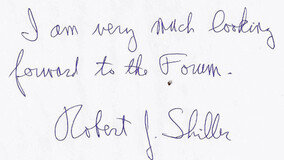 I am very much looking
forward to the Forum.
Robert J. Shiller